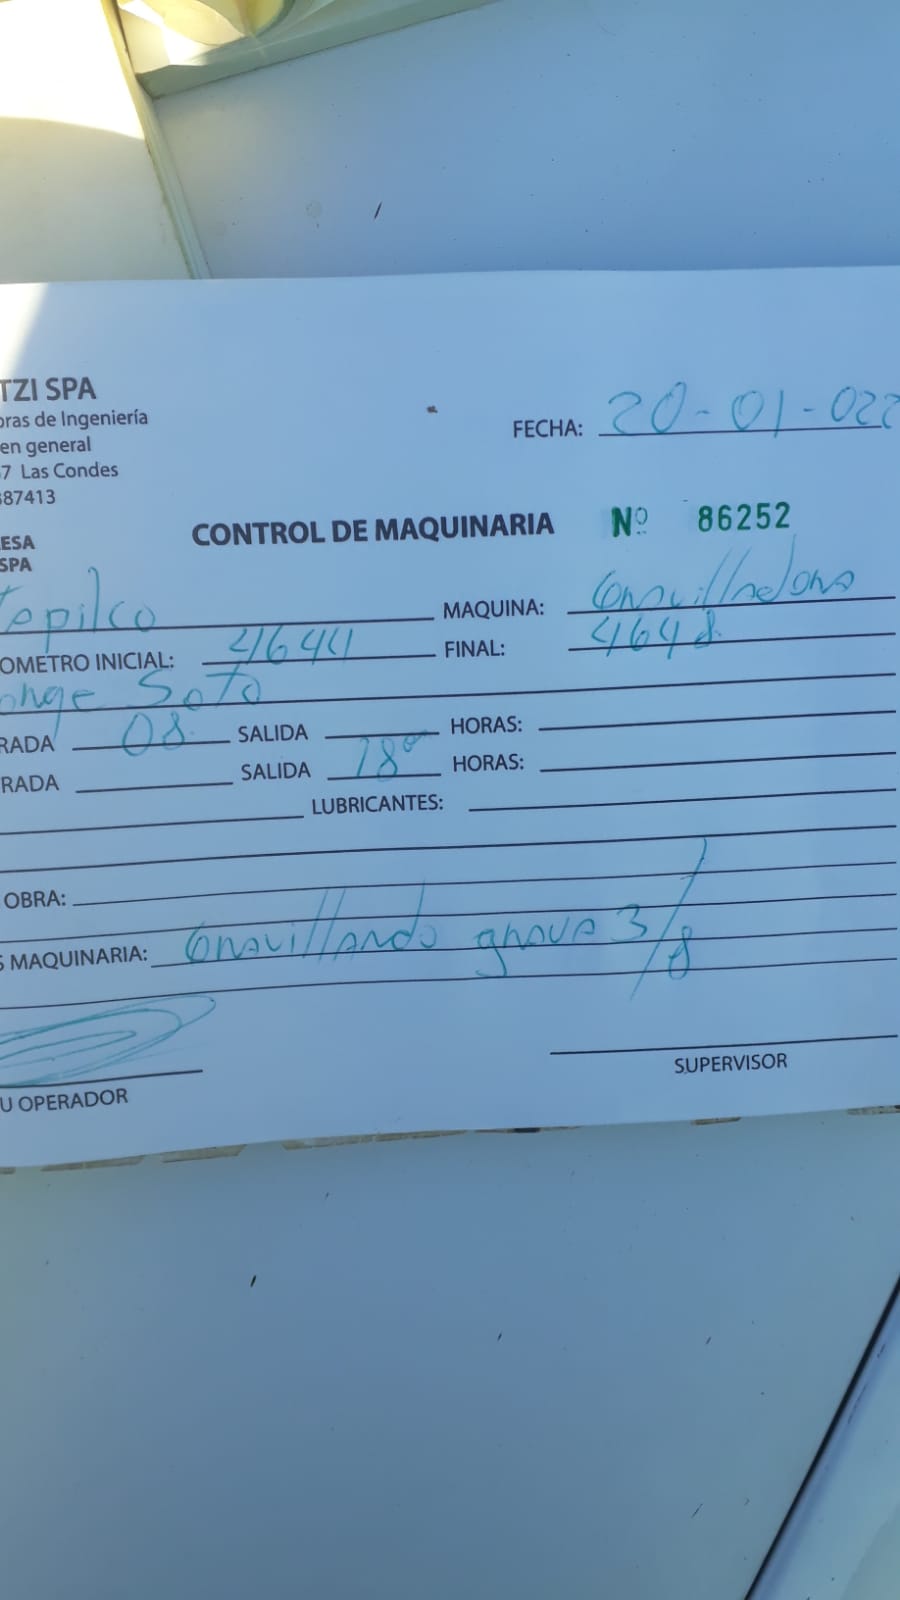 TZI SPA
oras de Ingeniería
en general
7 Las Condes
887413
FECHA: 20-01-022
ESA
SPA
CONTROL DE MAQUINARIA Nº 86252
Tepilco MAQUINA: Gravilladora
OMETRO INICIAL: 4644 FINAL: 4648
orge Soto
RADA 08 SALIDA HORAS:
RADA SALIDA 18°° HORAS:
LUBRICANTES:
OBRA:
S MAQUINARIA: Gravillando grava 3/8
SUPERVISOR
U OPERADOR